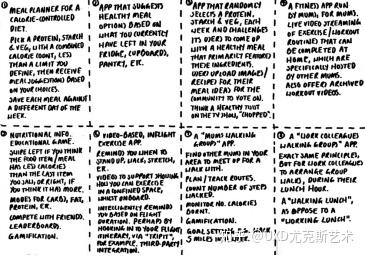 MEAL PLANNER FOR A
CALORIE-CONTROLLED
DIET.
PICK A PROTEIN, STARCH
& VEG, WITH A COMBINED
CALORIE COUNT, LESS
THAN A LIMIT YOU
DEFINE, THEN RECEIVE
MEAL SUGGESTIONS BASED
ON YOUR CHOICES.
SAVE EACH MEAL AGAINST
A DIFFERENT DAY OF THE
WEEK.
APP THAT SUGGESTS
HEALTHY MEAL
OPTIONS BASED ON
WHAT YOU CURRENTLY
HAVE LEFT IN YOUR
FRIDGE, CUPBOARDS,
PANTRY, ETC.
APP THAT RANDOMLY
SELECTS A PROTEIN,
STARCH & VEG, EACH
WEEK AND CHALLENGES
ITS USERS TO COME UP
WITH A HEALTHY MEAL
THAT PRIMARILY FEATURES
THESE INGREDIENTS.
USERS UPLOAD IMAGES/
RECIPES FOR THEIR
MEAL IDEAS FOR THE
COMMUNITY TO VOTE ON.
THINK A HEALTHY TWIST
ON THE TV SHOW, "CHOPPED".
A FITNESS APP RUN
BY MUMS, FOR MUMS.
LIVE VIDEO STREAMING
OF EXERCISE/WORKOUT
ROUTINES THAT CAN
BE COMPLETED AT
HOME, WHICH ARE
SPECIFICALLY HOSTED
BY OTHER MUMS.
ALSO OFFERS ARCHIVED
WORKOUT VIDEOS.
NUTRITIONAL INFO.
EDUCATIONAL GAME.
SWIPE LEFT IF YOU THINK
THE FOOD ITEM/MEAL
HAS LESS CALORIES
THAN THE LAST ITEM
YOU SAW, OR RIGHT, IF
YOU THINK IT HAS MORE.
MODES FOR CARBS, FAT,
PROTEIN, ETC.
COMPETE WITH FRIENDS.
LEADERBOARDS.
GAMIFICATION.
VIDEO-BASED, INFLIGHT
EXERCISE APP.
REMINDS YOU WHEN TO
STAND UP, WALK, STRETCH,
ETC.
VIDEO TO SUPPORT SHOWING
HOW YOU CAN EXERCISE
IN A CONFINED SPACE,
WHILST ONBOARD.
INTELLIGENTLY REMINDS
YOU BASED ON FLIGHT
DURATION. PERHAPS BY
HOOKING IN TO YOUR FLIGHT
ITINERARY, VIA "TRIPIT",
FOR EXAMPLE, THIRD-PARTY
INTEGRATION.
A "MUMS WALKING
GROUPS" APP.
FIND OTHER MUMS IN YOUR
AREA TO MEET UP FOR A
WALK WITH.
PLAN/TRACK ROUTES.
COUNT NUMBER OF STEPS
WALKED.
MONITOR NO. CALORIES
BURNT.
GAMIFICATION.
GOAL SETTING E.G. WALK
5 MILES IN
A "WORK COLLEAGUES
WALKING GROUPS" APP.
EXACT SAME PRINCIPLES,
BUT FOR WORK COLLEAGUES
TO ARRANGE GROUP
WALKS, DURING THEIR
LUNCH HOUR.
A "WALKING LUNCH",
AS OPPOSE TO A
"WORKING LUNCH".
知乎 @UXD尤克斯艺术